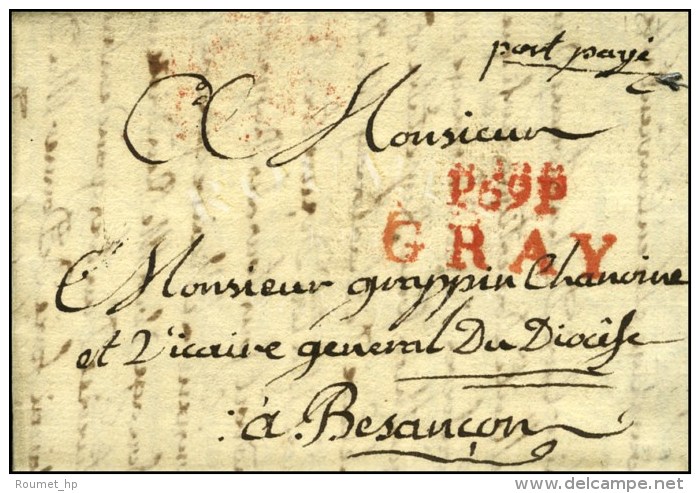 port payé
A Monsieur
P69P
GRAY
Monsieur grappin Chanoine
et Vicaire general Du Diocêse
à Besançon
Roumet_hp
©delcampe.net